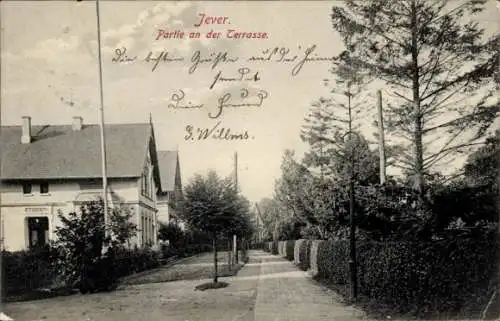 Jever.
Partie an der Terrasse.
Die besten Grüße aus der Heim
sendet
Dein Freund
G. Willms.